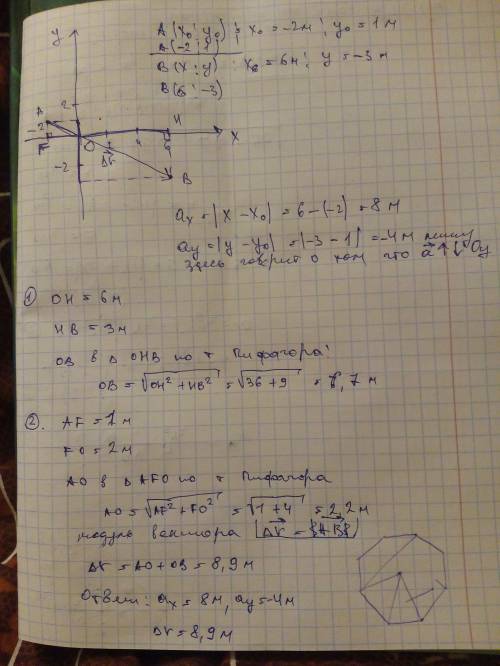 y
A (x₀; y₀) ; x₀ = -2м; y₀ = 1 м
A (-2; 1)
B (x; y) : x = 6м; y = -3 м
B (6; -3)
2
A
-2
F
O
4
6
H
X
Δr
-2
B
ax = |x - x₀| = 6 - (-2) = 8 м
ay = |y - y₀| = |-3 - 1| = -4 м минус
здесь говорит о том что a↑↓Oy
① OH = 6 м
HB = 3 м
OB в Δ OHB по т Пифагора:
OB = √OH² + HB² = √36 + 9 = 6,7 м
②. AF = 1 м
FO = 2 м
AO в Δ AFO по т Пифагора
AO = √AF² + FO² = √1 + 4 = 2,2 м
модуль вектора |Δr = {AB}|
Δr = AO + OB = 8,9 м
Ответ: ax = 8 м, ay = -4 м
Δr = 8,9 м